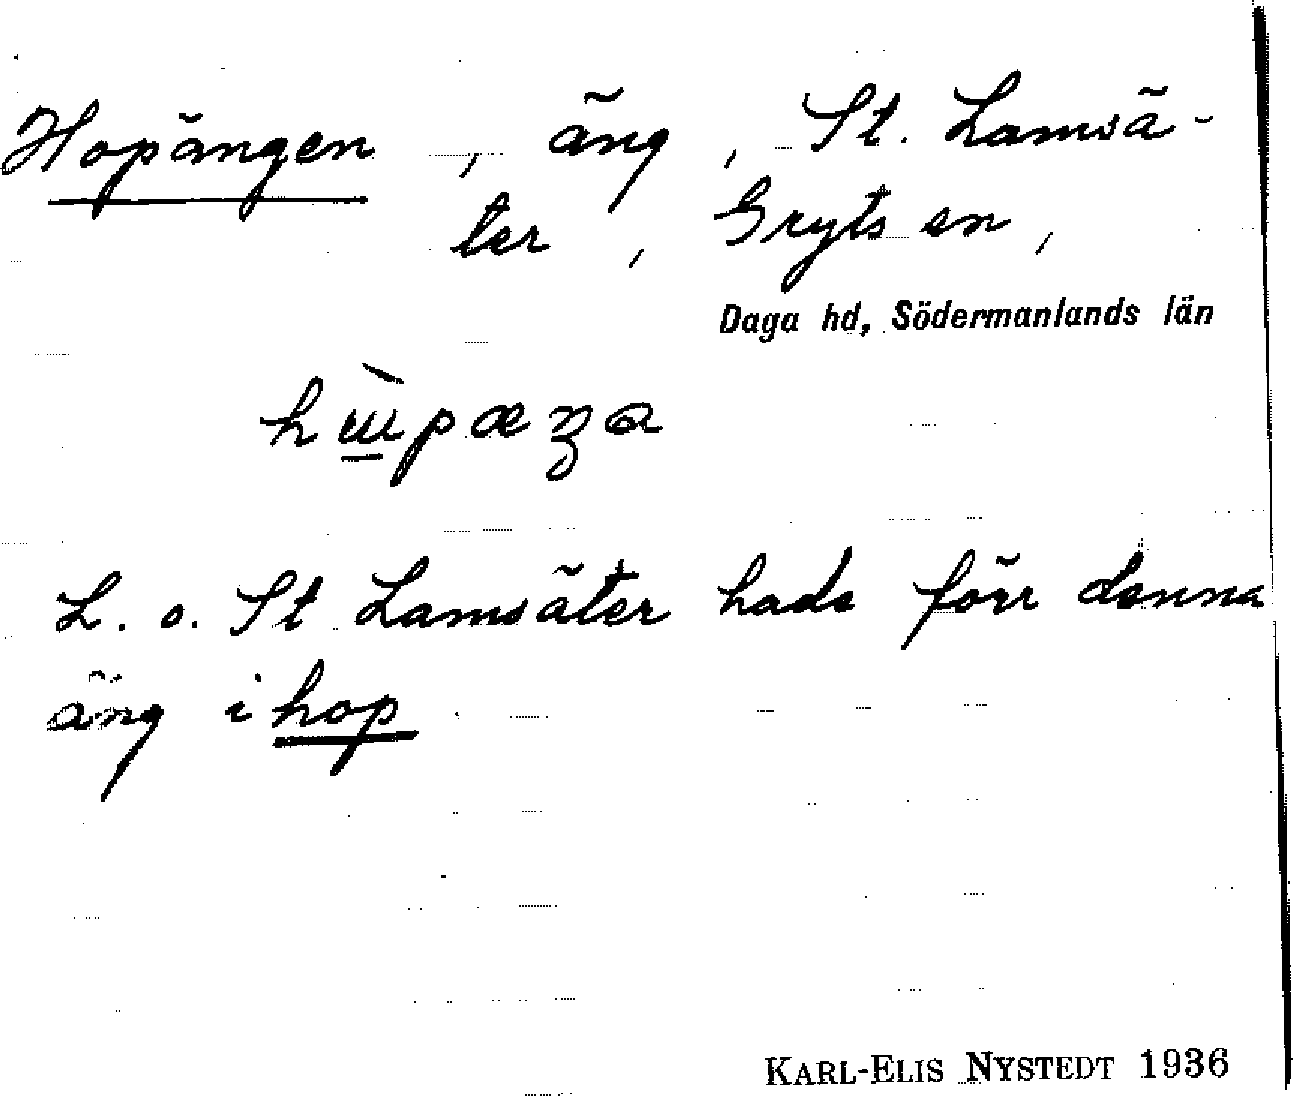 Hopängen, äng, St. Lamsä-
ter, Gryts sn,
Daga hd, Södermanlands län
L. o. St Lamsäter hade förr denna
äng ihop
KARL-ELIS NYSTEDT 1936